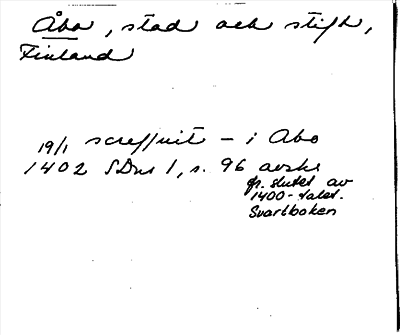 Åbo, stad och stift,
Finland
19/1 screffuit - i Abo
1402 SDns 1, s. 96 avskr
fr. slutet av
1400-talet.
Svartboken